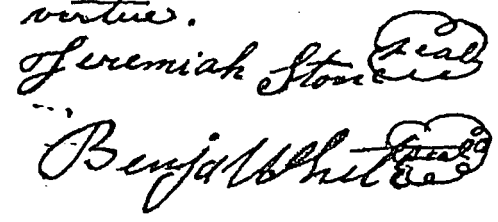 virtue.
Jeremiah Stone seal
Benja White seal